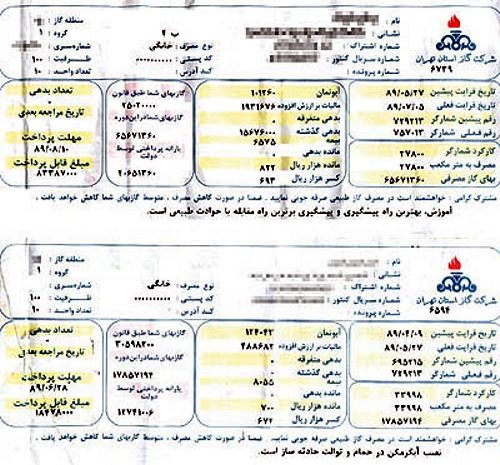 شرکت گاز استان تهران
۶۷۳۹
نام :
نشانی :
شماره اشتراک :
شماره سریال کنتور :
شماره پرونده :
نوع مصرف : خانگی
کد پستی : ۰۰۰۰۰۰۰۰۰۰
کد آدرس :
منطقه گاز :
گروه : ۱
شماره سری :
ظرفیت : ۱۰۰
تعداد واحد : ۱۰
تاریخ قرایت پیشین ۸۹/۰۵/۲۷
تاریخ قرایت فعلی ۸۹/۰۷/۰۵
رقم پیشین شمارگر ۷۲۹۲۱۳
رقم فعلی شمارگر ۷۵۷۰۱۳
کارکرد شمارگر ۲۷۸۰۰
مصرف به متر مکعب ۲۷۸۰۰
بهای گاز مصرفی ۶۵۶۷۱۳۶۰
آبونمان ۱۰۱۲۶۰
مالیات بر ارزش افزوده ۱۹۳۱۶۷۶
بدهی متفرقه ۰
بدهی گذشته ۱۵۶۷۶۰۰۰
بیمه ۶۵۷۵
مانده بدهی ۰
مانده هزار ریال ۸۲۲
کسر هزار ریال ۶۹۳
گازبهای شما طبق قانون
۲۵۰۲۰۰۰۰
گازبهای شما در این دوره
۶۵۶۷۱۳۶۰
یارانه پرداختی توسط دولت
۲۰۶۵۱۳۶۰
تعداد بدهی
تاریخ مراجعه بعدی
مهلت پرداخت
۸۹/۰۸/۱۰
مبلغ قابل پرداخت
۸۳۳۸۷۰۰۰
مشترک گرامی : خواهشمند است در مصرف گاز طبیعی صرفه جویی نمایید . ضمنا در صورت کاهش مصرف ، متوسط گازبهای شما کاهش خواهد یافت .
آموزش، بهترین راه پیشگیری و پیشگیری برترین راه مقابله با حوادث طبیعی است.
شرکت گاز استان تهران
۶۵۹۴
نام :
نشانی :
شماره اشتراک :
شماره سریال کنتور :
شماره پرونده :
نوع مصرف : خانگی
کد پستی : ۰۰۰۰۰۰۰۰۰۰
کد آدرس :
منطقه گاز :
گروه : ۱
شماره سری :
ظرفیت : ۱۰۰
تعداد واحد : ۱۰
تاریخ قرایت پیشین ۸۹/۰۴/۰۹
تاریخ قرایت فعلی ۸۹/۰۵/۲۷
رقم پیشین شمارگر ۶۹۵۲۱۵
رقم فعلی شمارگر ۷۲۹۲۱۳
کارکرد شمارگر ۳۳۹۹۸
مصرف به متر مکعب ۳۳۹۹۸
بهای گاز مصرفی ۱۷۸۵۷۱۹۴
آبونمان ۱۲۴۰۴۲
مالیات بر ارزش افزوده ۴۸۸۶۸۲
بدهی متفرقه ۰
بدهی گذشته ۰
بیمه ۸۰۵۵
مانده بدهی ۰
مانده هزار ریال ۷۰۰
کسر هزار ریال ۶۷۲
گازبهای شما طبق قانون
۳۰۵۹۸۲۰۰
گازبهای شما در این دوره
۱۷۸۵۷۱۹۴
یارانه پرداختی توسط دولت
۱۲۷۴۱۰۰۶
تعداد بدهی
تاریخ مراجعه بعدی
مهلت پرداخت
۸۹/۰۶/۲۸
مبلغ قابل پرداخت
۱۸۴۷۸۰۰۰
مشترک گرامی : خواهشمند است در مصرف گاز طبیعی صرفه جویی نمایید . ضمنا در صورت کاهش مصرف ، متوسط گازبهای شما کاهش خواهد یافت .
نصب آبگرمکن در حمام و توالت حادثه ساز است.